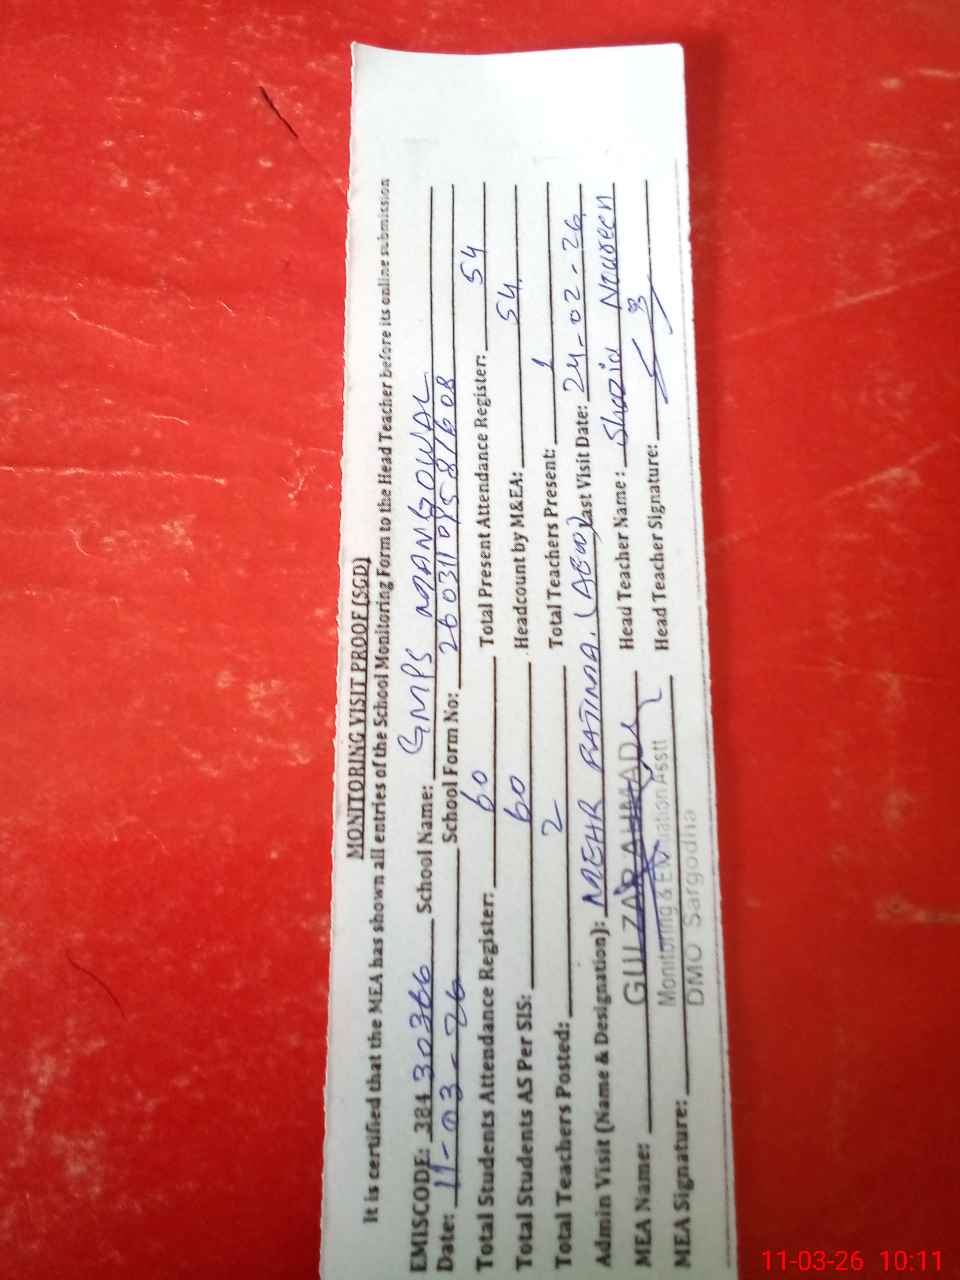 MONITORING VISIT PROOF (SGD)
It is certified that the MEA has shown all entries of the School Monitoring Form to the Head Teacher before its online submission
EMISCODE: 384 30366 School Name: GMPS MANGOWAL
Date: 11-03-26 School Form No: 260311015871608
Total Students Attendance Register: 60 Total Present Attendance Register: 54
Total Students AS Per SIS: 60 Headcount by M&EA: 54
Total Teachers Posted: 2 Total Teachers Present: 1
Admin Visit (Name & Designation): MEHR FATIMA. (AEO) Last Visit Date: 24-02-26
MEA Name: GULZAR AHMAD Head Teacher Name: Shazia Noureen
Monitoring & Evaluation Asstt
MEA Signature: DMO Sargodha Head Teacher Signature:
11-03-26 10:11